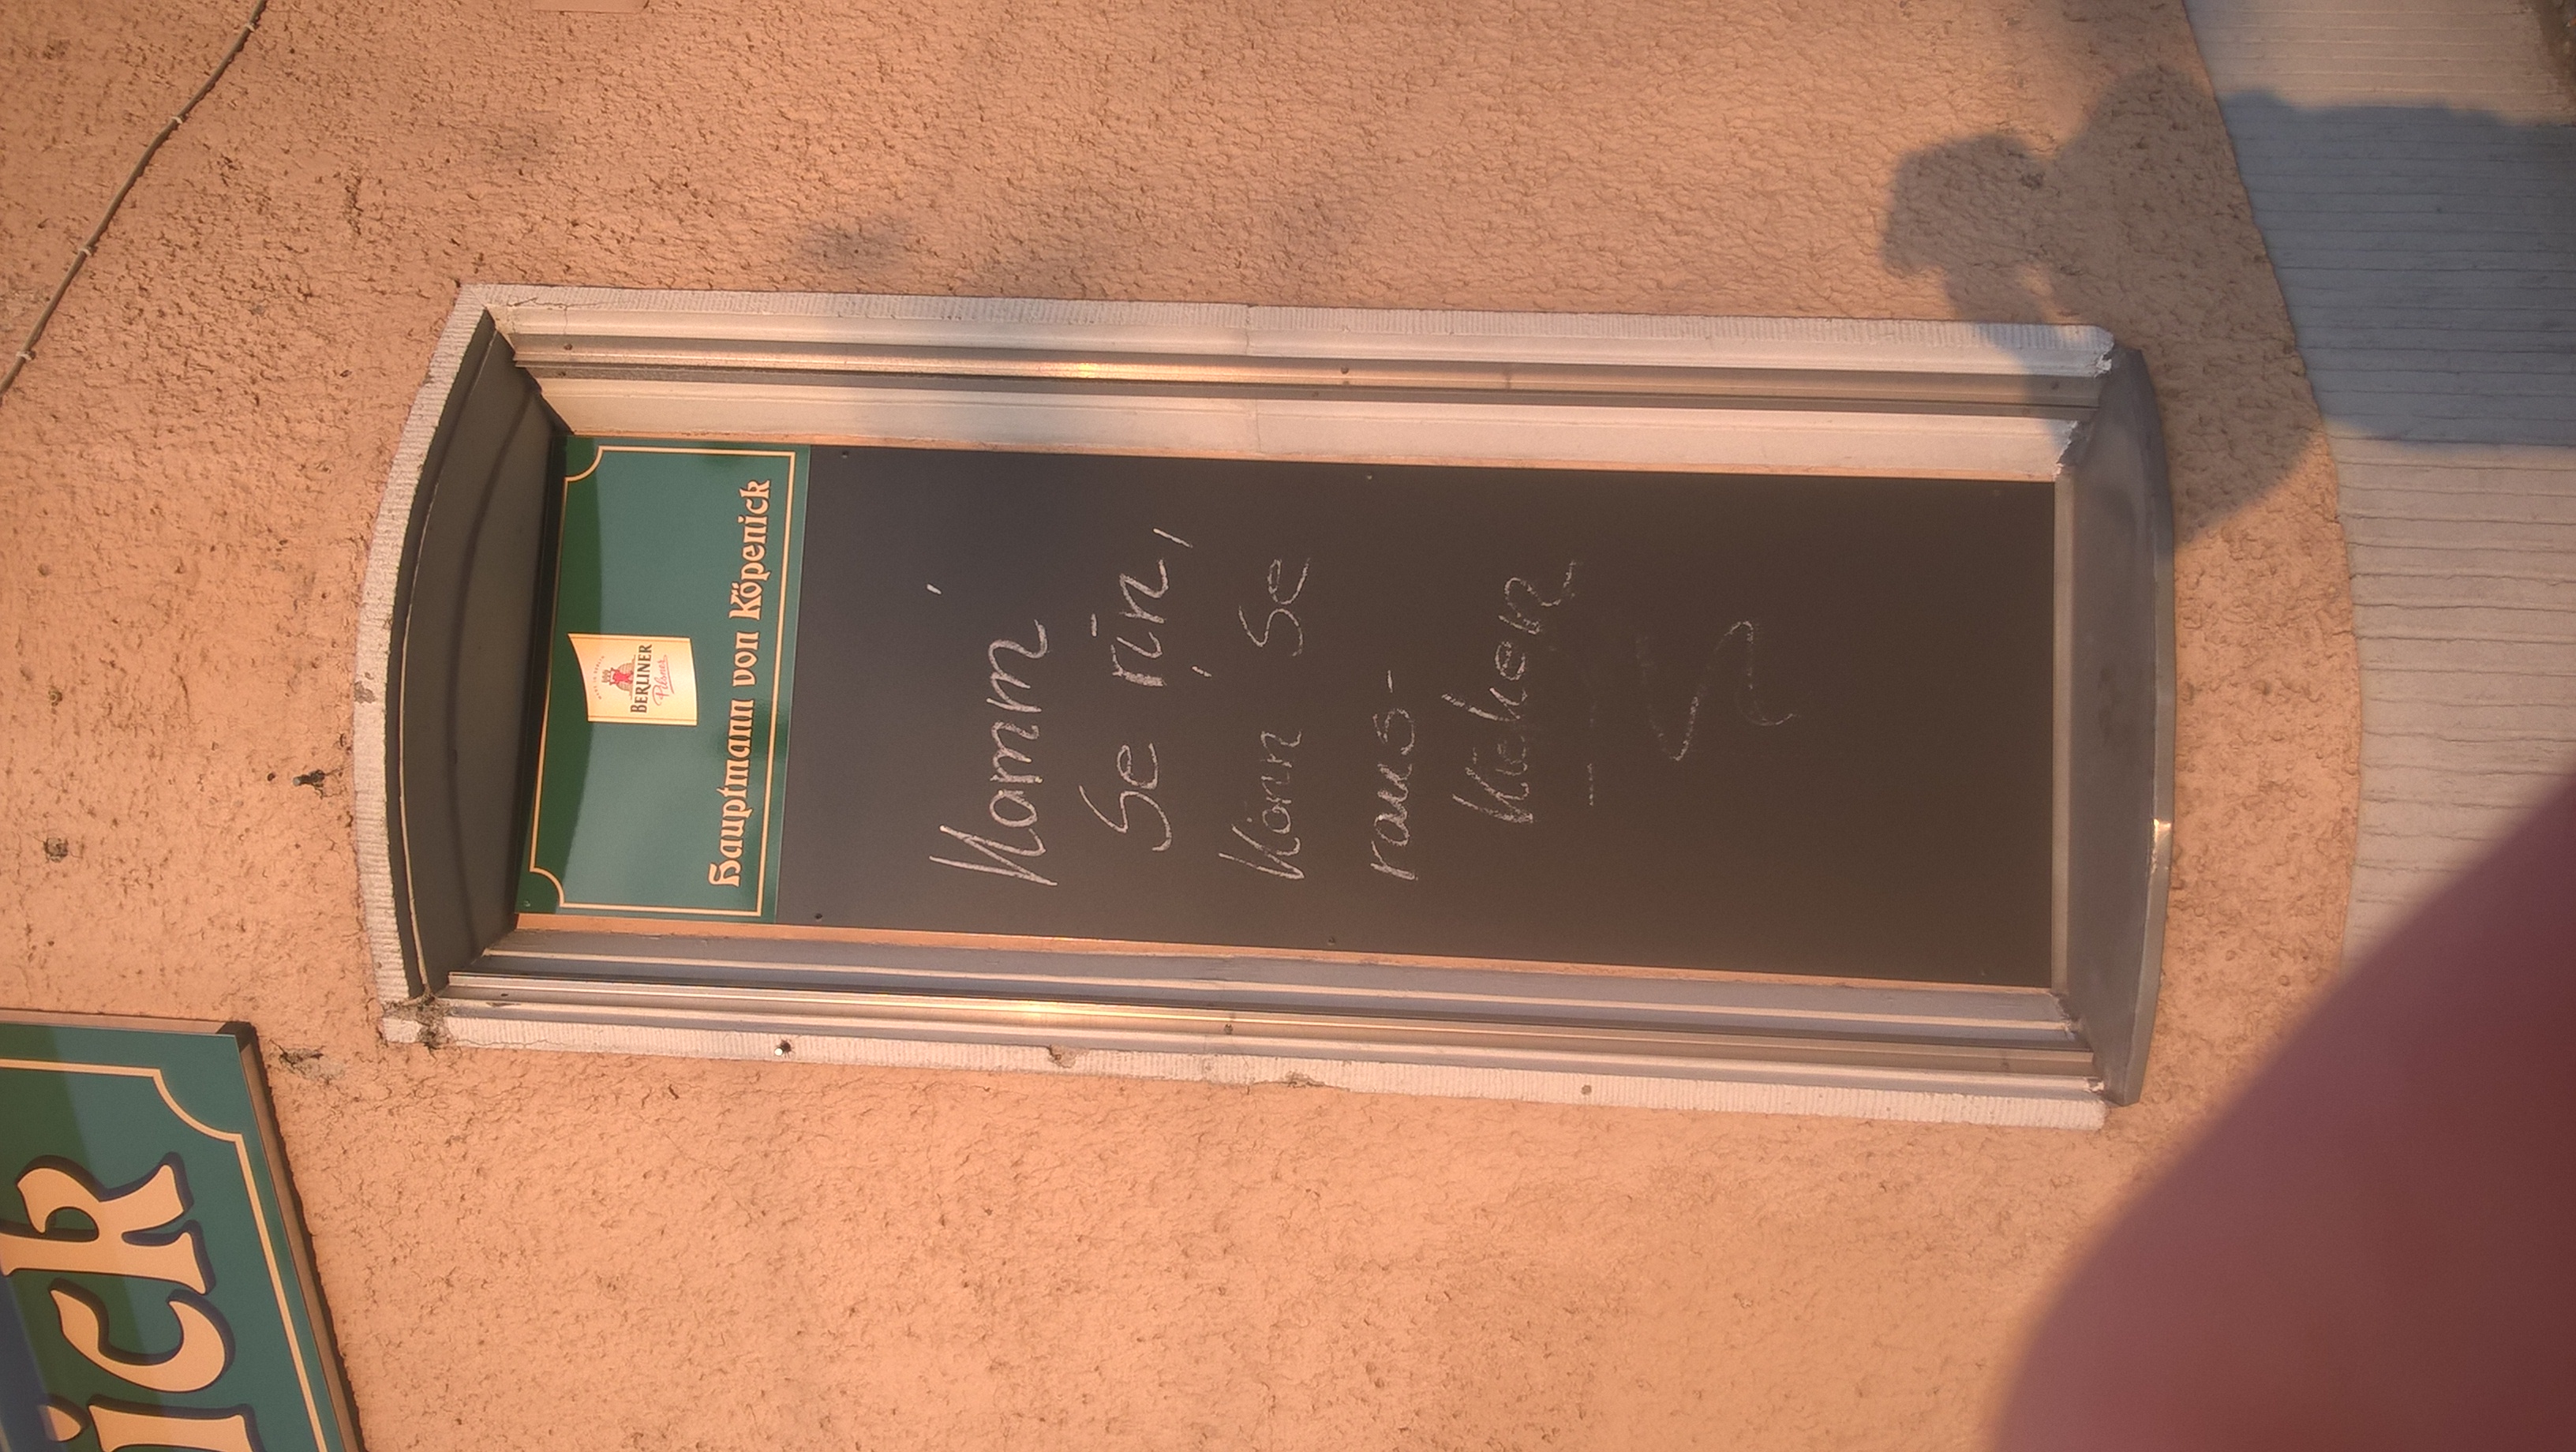 BERLINER
Pilsner
Hauptmann von Köpenick
Komm
Se rin,
Könn Se
raus-
kieken
ick